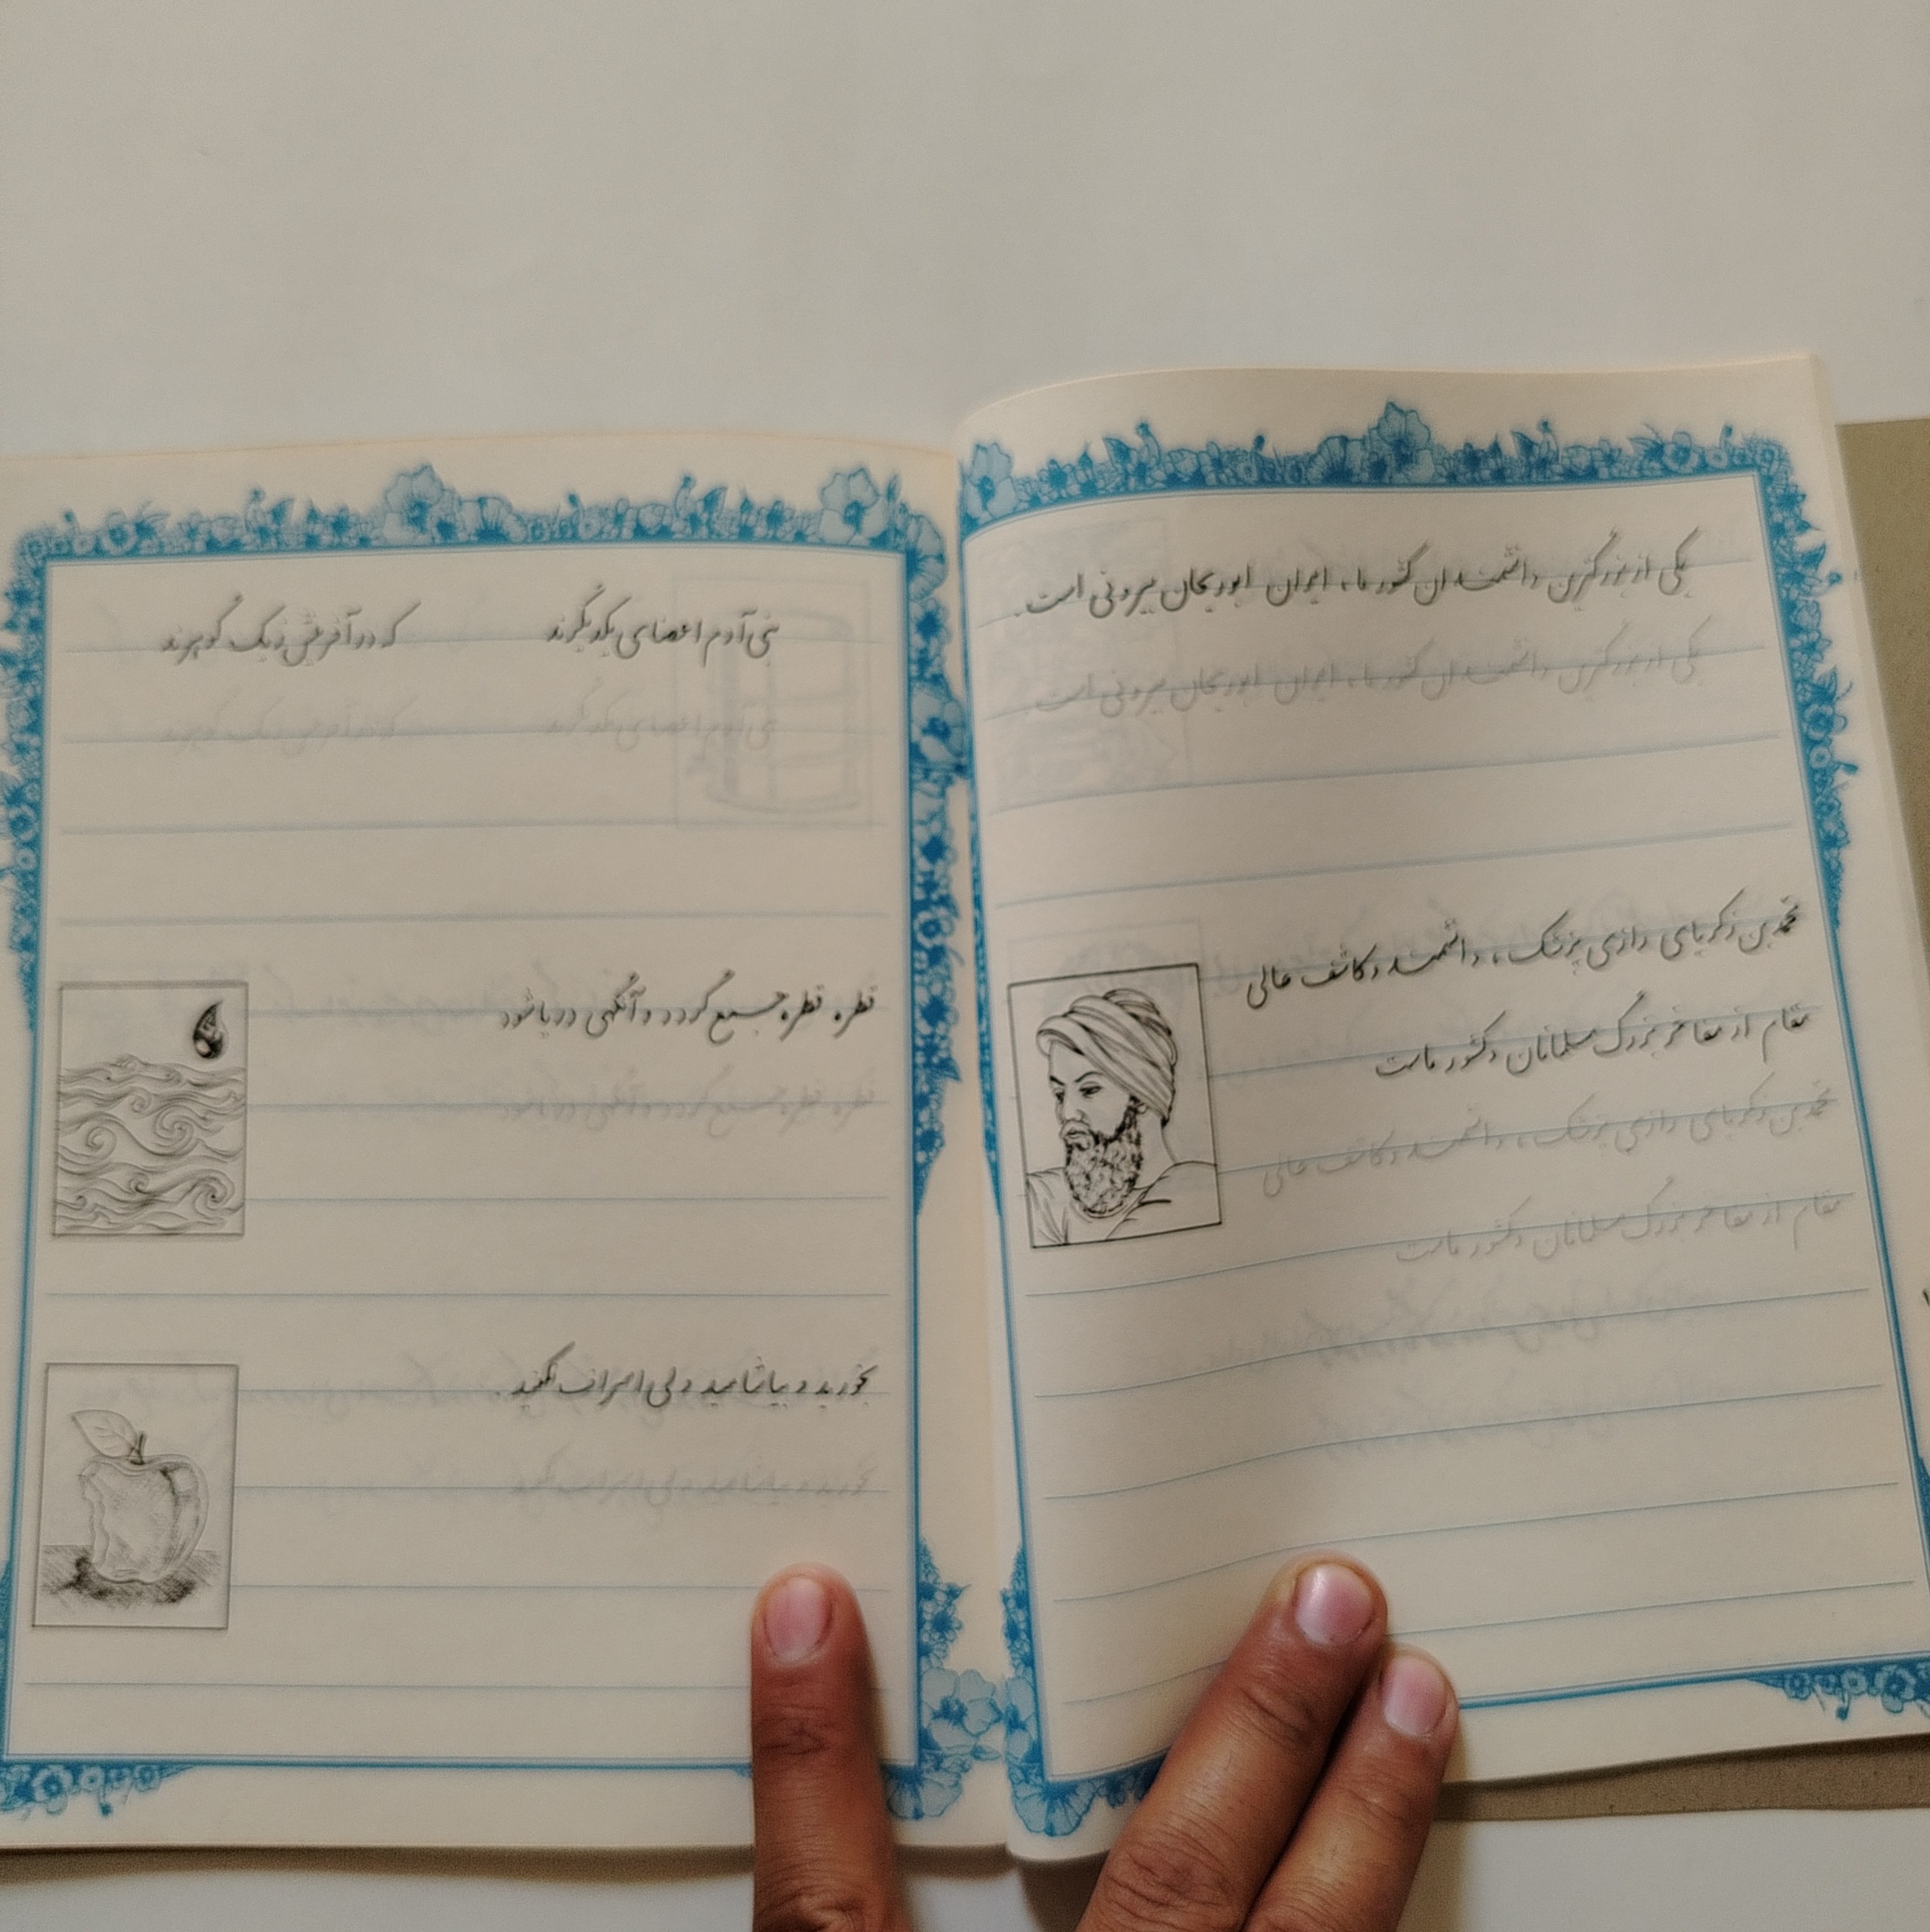 یکی از بزرگترین دانشمندان کشور ما، ایران ابوریحان بیرونی است.
یکی از بزرگترین دانشمندان کشور ما، ایران ابوریحان بیرونی است
محمد بن زکریای رازی پزشک، دانشمند و کاشف عالی
مقام از مفاخر بزرگ مسلمانان و کشور ماست
محمد بن زکریای رازی پزشک، دانشمند و کاشف عالی
مقام از مفاخر بزرگ مسلمانان و کشور ماست
بنی آدم اعضای یکدیگرند که در آفرینش ز یک گوهرند
بنی آدم اعضای یکدیگرند که در آفرینش ز یک گوهرند
قطره قطره جمع گردد و آنگهی دریا شود
قطره قطره جمع گردد و آنگهی دریا شود
بخورید و بیاشامید ولی اسراف نکنید.
بخورید و بیاشامید ولی اسراف نکنید